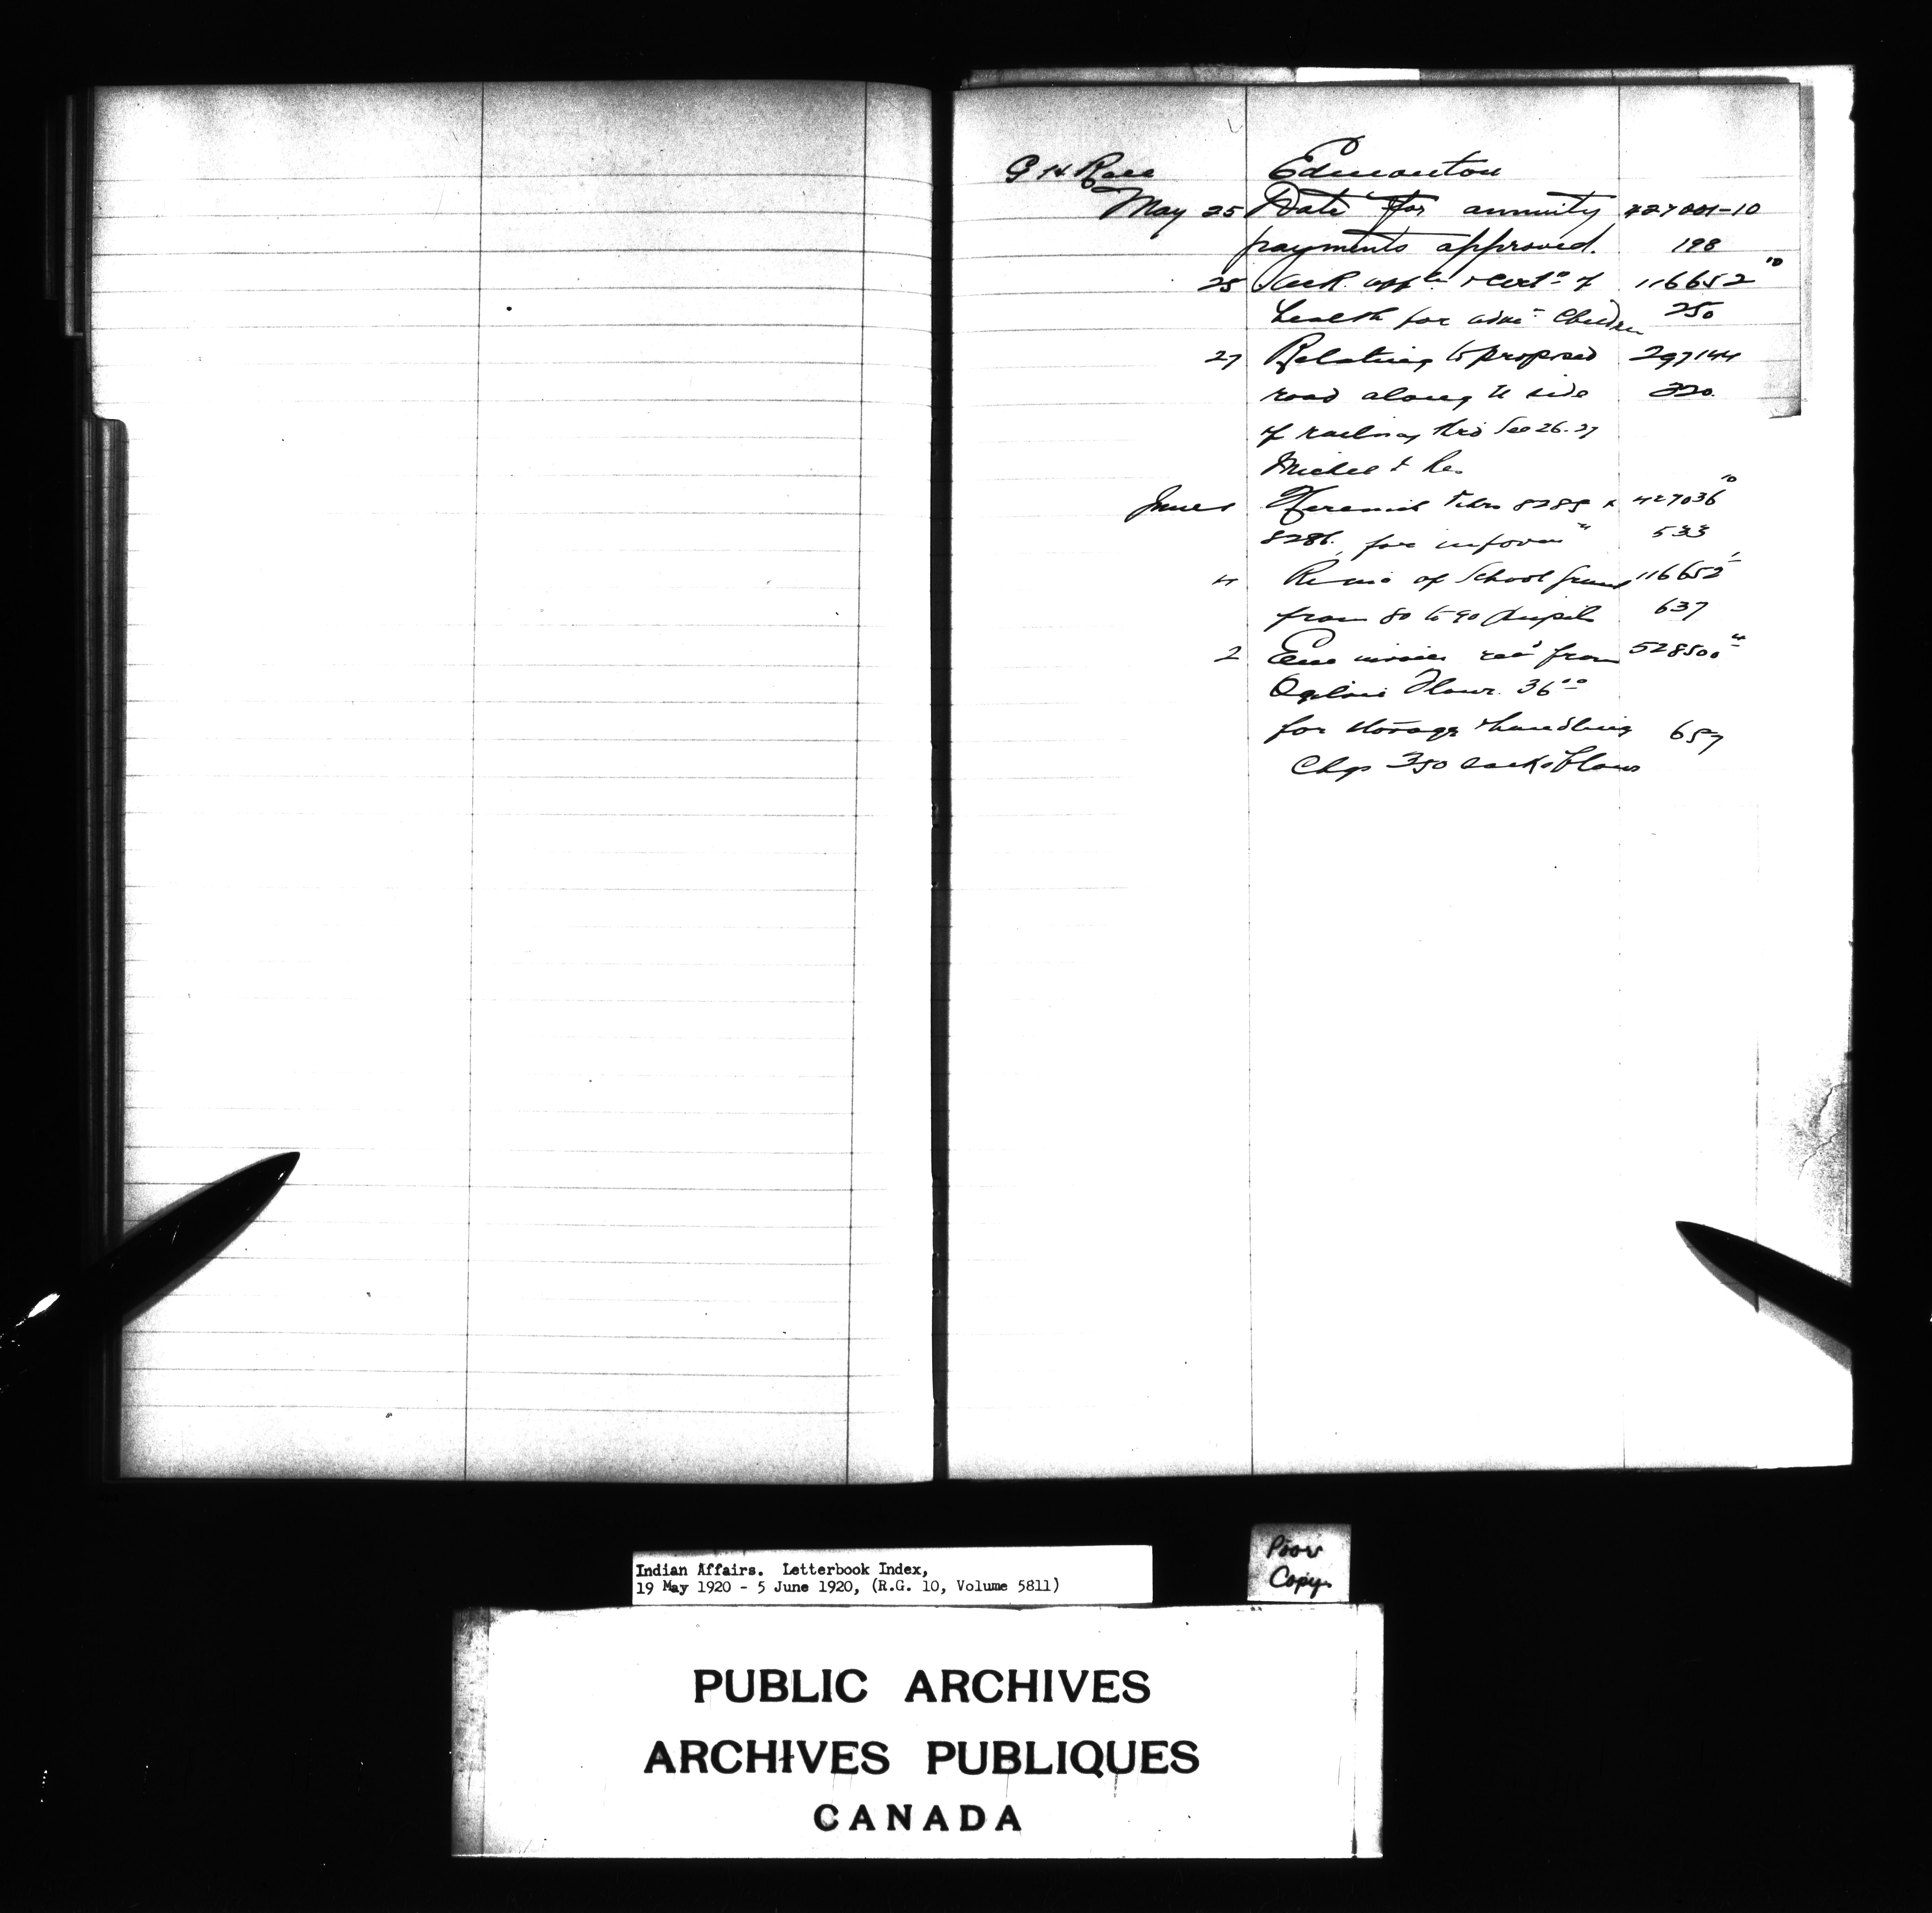 G H Race Edmonton
May 25 Date for annuity 427001-10
payments approved. 198
25 appln & Certn of 116652 10
health for adm Children 250
27 Relating to proposed 297144
road along side 320.
of railway thro Sec 26.27
Michel Res
June 8285 & 427036 10
8286, for 533
4 of School 116652
from 80 to 90 pupils 637
2 recd from 528500
Ogilvie Flour. 36 00
for storage & handling 657
Chgs 350 sacks flour
Indian Affairs. Letterbook Index,
19 May 1920 - 5 June 1920, (R.G. 10, Volume 5811)
Poor
Copy.
PUBLIC ARCHIVES
ARCHIVES PUBLIQUES
CANADA